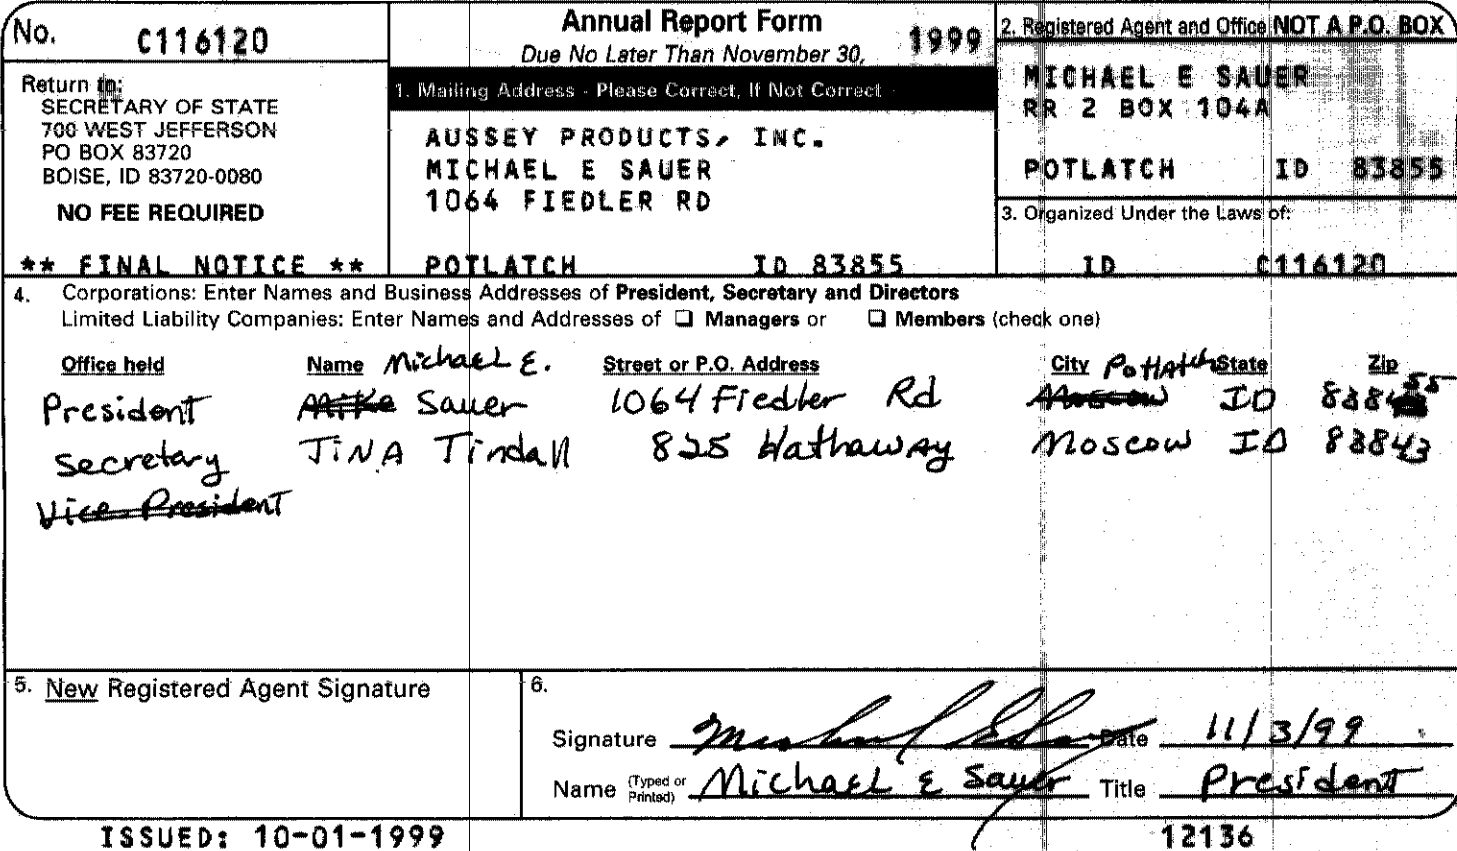 No. C116120
Annual Report Form
Due No Later Than November 30, 1999
Return to:
SECRETARY OF STATE
700 WEST JEFFERSON
PO BOX 83720
BOISE, ID 83720-0080
NO FEE REQUIRED
** FINAL NOTICE **
1. Mailing Address - Please Correct, If Not Correct
AUSSEY PRODUCTS, INC.
MICHAEL E SAUER
1064 FIEDLER RD
POTLATCH ID 83855
2. Registered Agent and Office NOT A P.O. BOX
MICHAEL E SAUER
RR 2 BOX 104A
POTLATCH ID 83855
3. Organized Under the Laws of:
ID C116120
4. Corporations: Enter Names and Business Addresses of President, Secretary and Directors
Limited Liability Companies: Enter Names and Addresses of ☐ Managers or ☐ Members (check one)
Office held Name Michael E. Street or P.O. Address City Potlatch State Zip
President Mike Sauer 1064 Fiedler Rd Moscow ID 83855
Secretary TINA Tindall 825 Hathaway Moscow ID 83843
Vice President
5. New Registered Agent Signature
6.
Signature Michael E Sauer Date 11/3/99
Name (Typed or Printed) Michael E Sauer Title President
ISSUED: 10-01-1999
12136